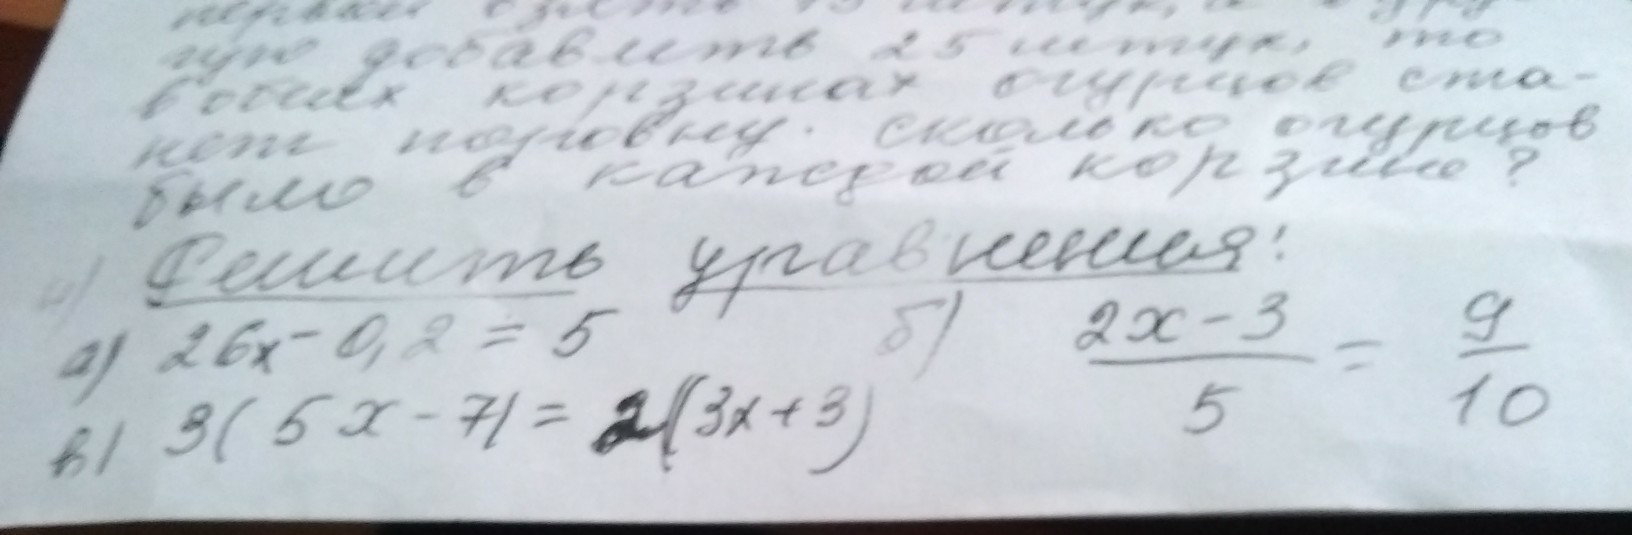 первой взять 15 штук, а в дру-
гую добавить 25 штук, то
в обеих корзинах огурцов ста-
нет поровну. сколько огурцов
было в каждой корзине?
4) Решить уравнения:
а) 26x - 0,2 = 5 б) \frac{2x-3}{5} = \frac{9}{10}
в) 3(5x - 7) = 2(3x + 3)